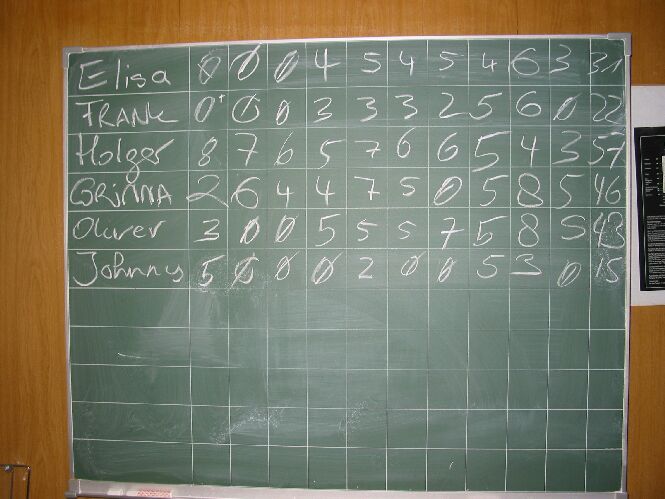 Elisa 0 0 0 4 5 4 5 4 6 3 31
FRANK 0+ 0 0 3 3 3 2 5 6 0 22
Holger 8 7 6 5 7 6 6 5 4 3 57
CORiNNA 2 6 4 4 7 5 0 5 8 5 46
Oliver 3 0 0 5 5 5 7 5 8 5 43
Johnny 5 0 0 0 2 0 0 5 3 0 15